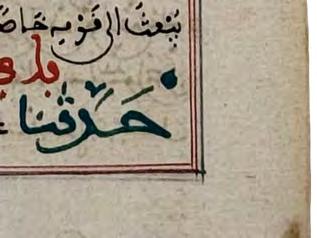 يُبْعَثُ إلى قَوْمِهِ خَاصَّ
باب
حَدَّثَنَا